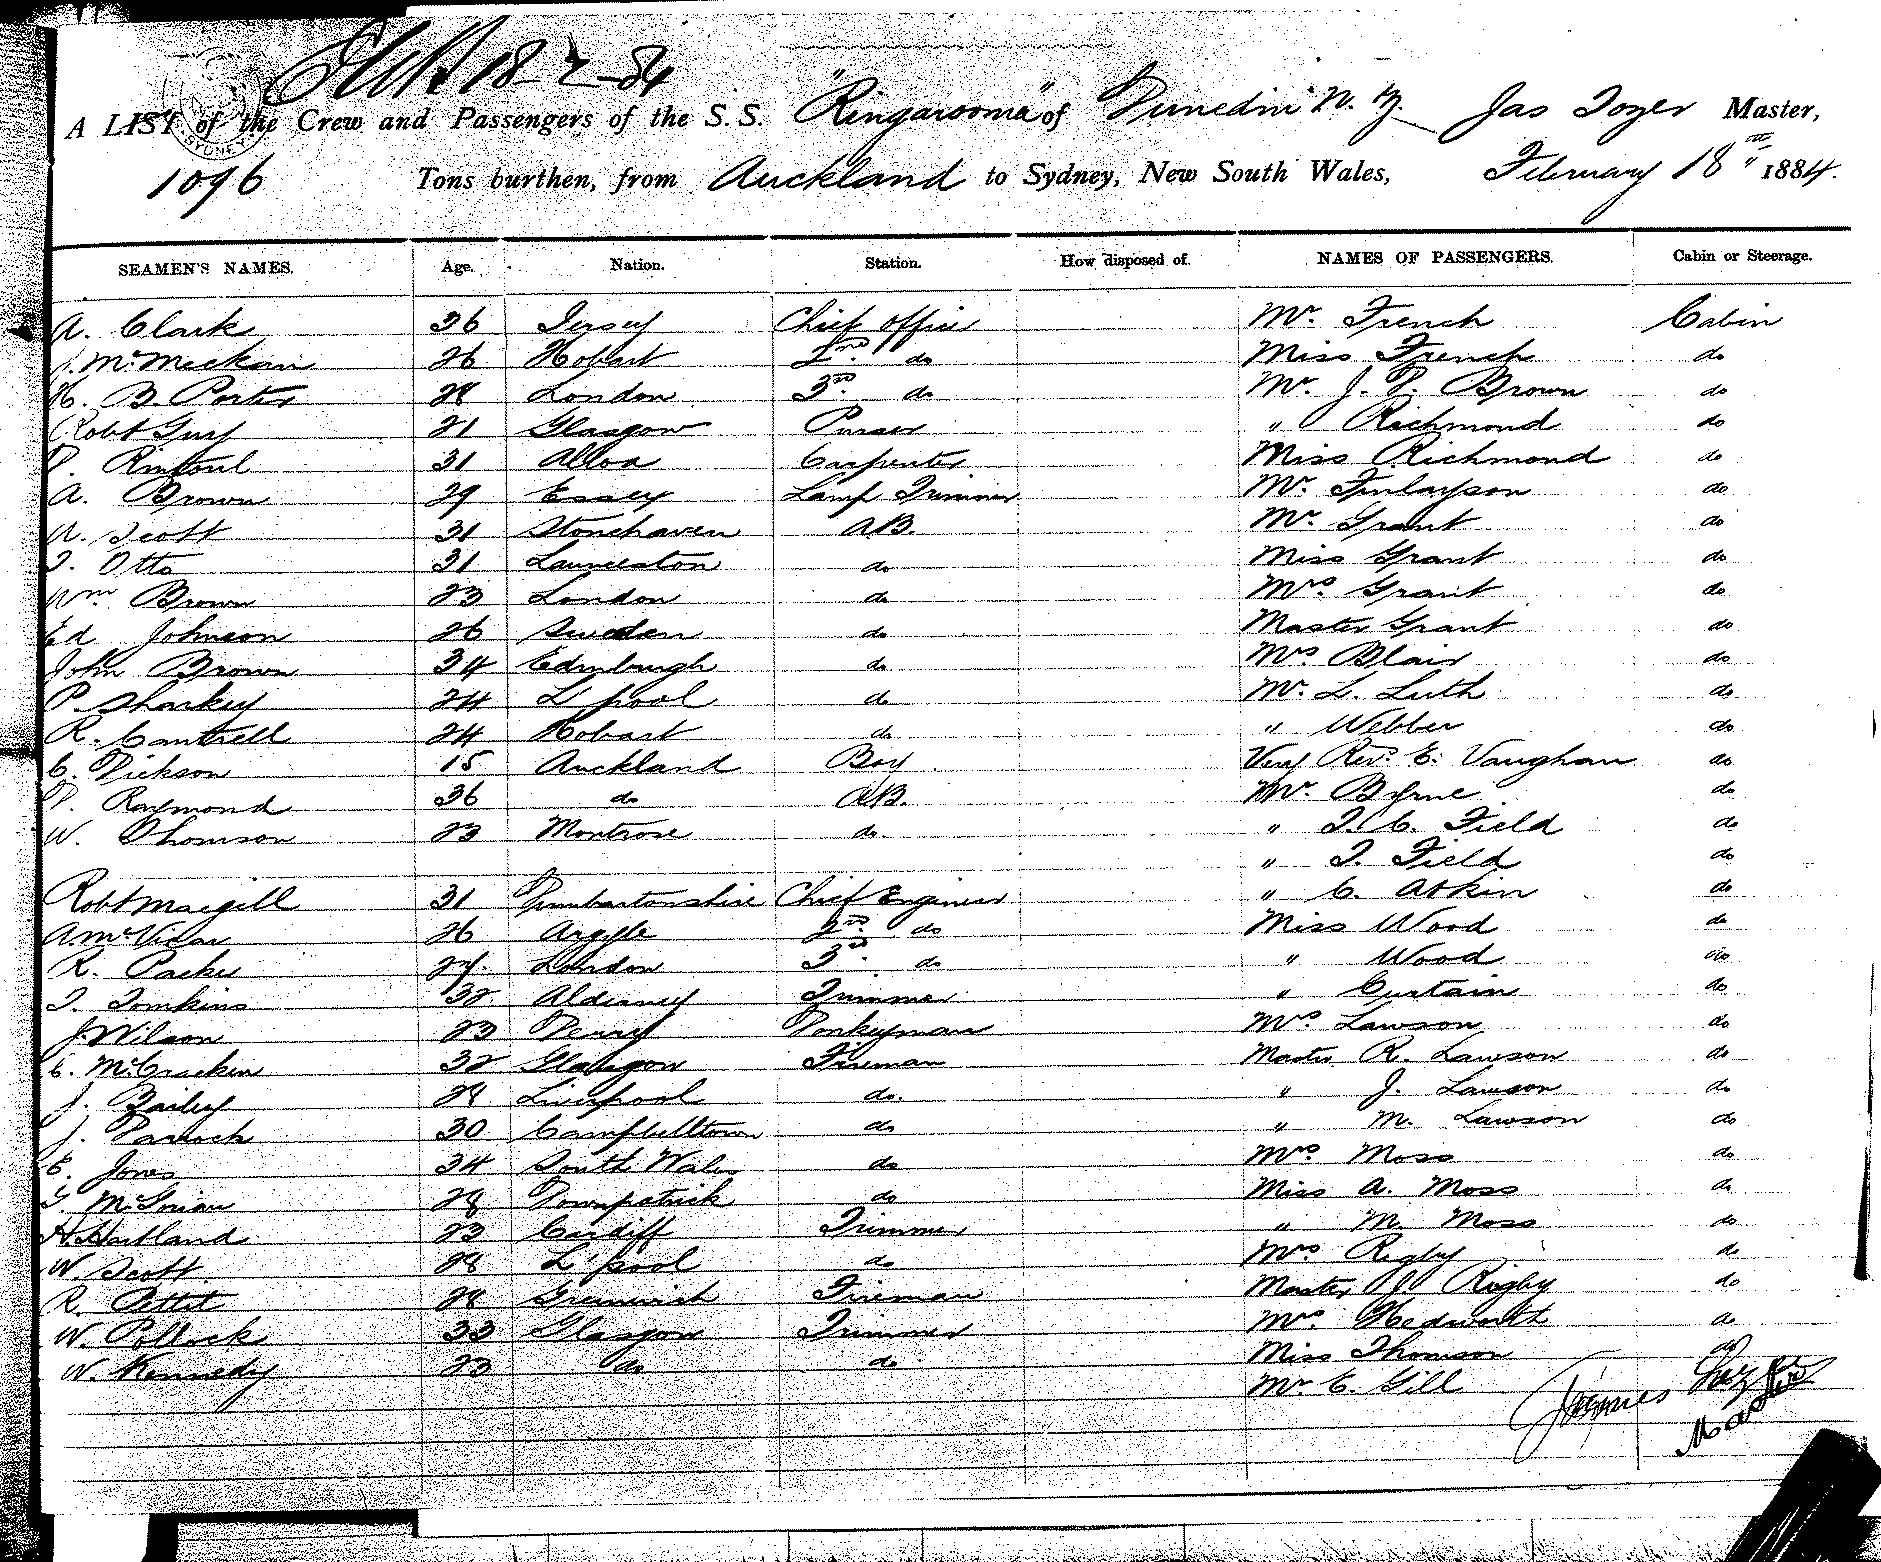 18-2-84
A LIST of the Crew and Passengers of the S.S. "Ringarooma" of Dunedin N.Z. Jas Tozer Master,
SYDNEY
1096 Tons burthen, from Auckland to Sydney, New South Wales, February 18th 1884.
SEAMEN'S NAMES. Age. Nation. Station. How disposed of. NAMES OF PASSENGERS. Cabin or Steerage.
A. Clark 36 Jersey Chief Officer Mr. French Cabin
McMeckan 26 Hobart 2nd do Miss French do
H. B. Porter 28 London 3rd do Mr. J. P. Brown do
Robt 21 Glasgow Purser " Richmond do
Rintoul 31 Alloa Carpenter Miss Richmond do
A. Brown 29 Essex Lamp Trimmer Mr. Finlayson do
A. Scott 31 Stonehaven AB. Mr. Grant do
T. Otto 31 Launceston do Miss Grant do
Wm Brown 23 London do Mrs Grant do
Ed Johnson 26 Sweden do Master Grant do
John Brown 34 Edinburgh do Mrs Blair do
P. Sharkey 24 L'pool do Mr. L. Luth do
R. Cantrell 24 Hobart do " Webber do
C. Dickson 15 Auckland Boy Very Revd. E. Vaughan do
Raymond 36 do AB. Mr Byrne do
W. Thomson 23 Montrose do " T. C. Field do
" T. Field do
Robt Macgill 31 Dumbartonshire Chief Engineer " C. Atkin do
A McVicar 26 Argyle 2nd do Miss Wood do
R. Parker 27 London 3rd do " Wood do
T. Tomkins 32 Alderney Trimmer " Curtain do
J. Wilson 23 Derry Donkeyman Mrs Lawson do
C. McCracken 32 Glasgow Fireman Master R. Lawson do
J. Bailey 28 Liverpool do. " J. Lawson do
J. Darroch 30 Campbelltown do " M. Lawson do
E. Jones 34 South Wales do Mrs Moss do
28 Downpatrick do Miss A. Moss do
H. Hartland 23 Cardiff Trimmer " M. Moss do
W. Scott 28 L'pool do Mrs Rigby do
R. Pettet 28 Greenwich Fireman Master Rigby do
W. Pollock 33 Glasgow Trimmer Mrs Hedworth do
W. Kennedy 23 do do Miss Thomson do
Mr E. Gill
James Tozer
Master